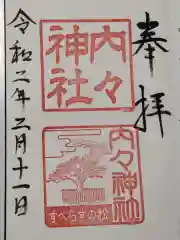 奉拝
内々神社
内々神社
すべらずの松
令和二年二月十一日